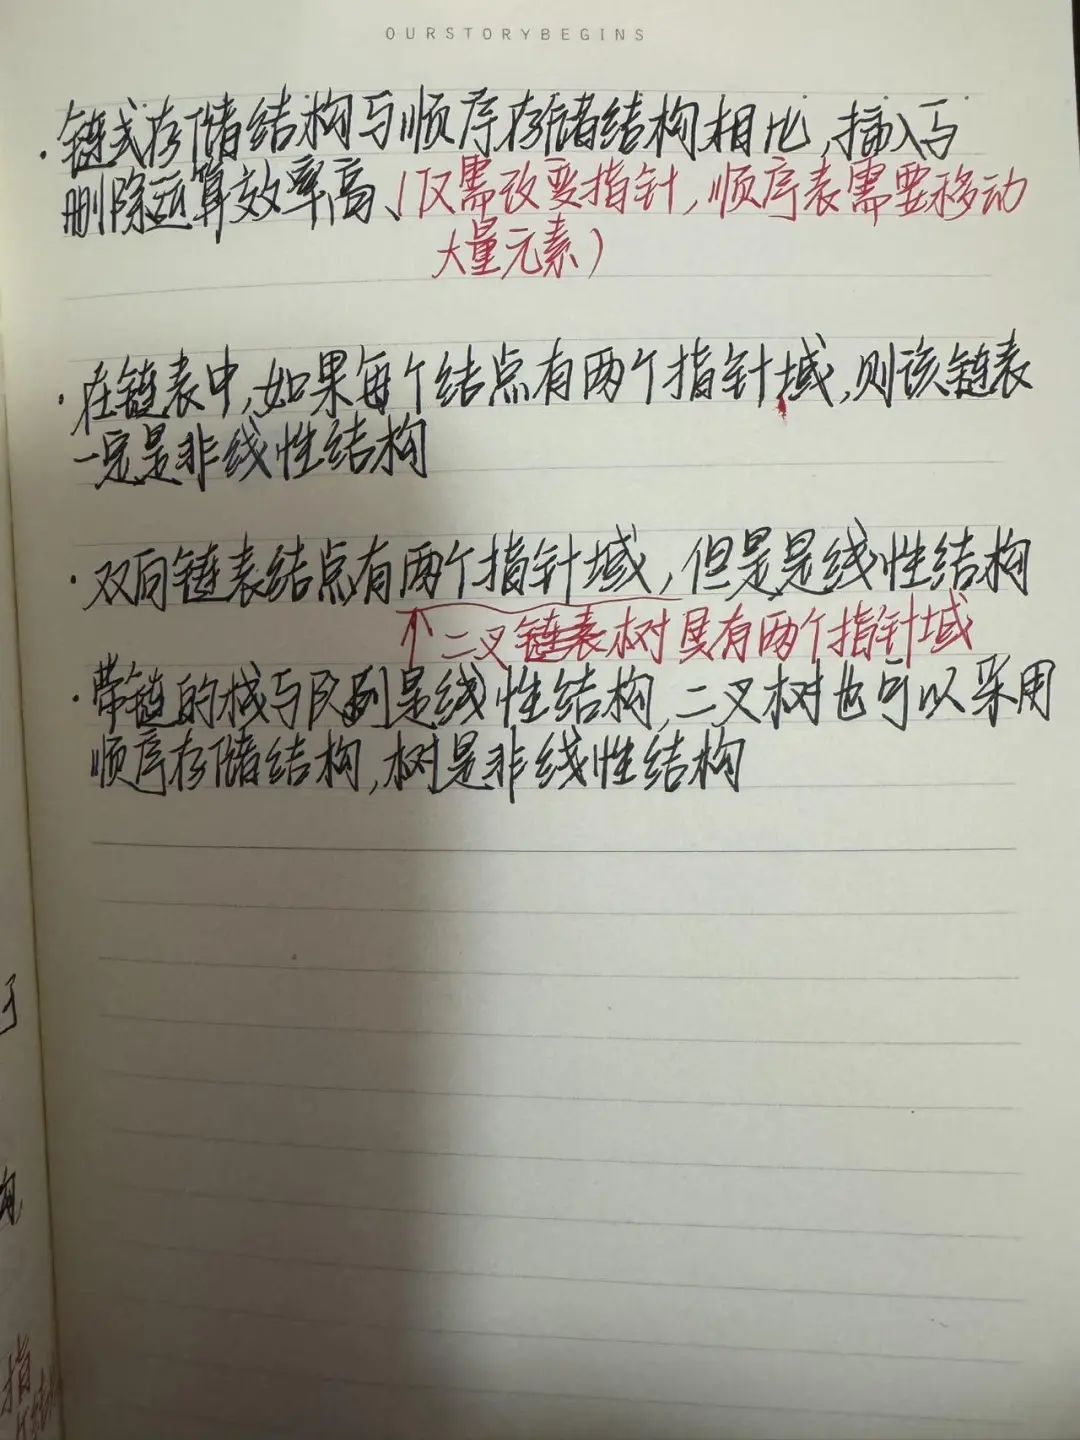 OURSTORYBEGINS
·链式存储结构与顺序存储结构相比,插入与
删除运算效率高、(仅需改变指针,顺序表需要移动
大量元素)
·在链表中,如果每个结点有两个指针域,则该链表
一定是非线性结构
·双向链表结点有两个指针域,但是是线性结构
二叉链表树具有两个指针域
·带链的栈与队列是线性结构,二叉树也可以采用
顺序存储结构,树是非线性结构
指